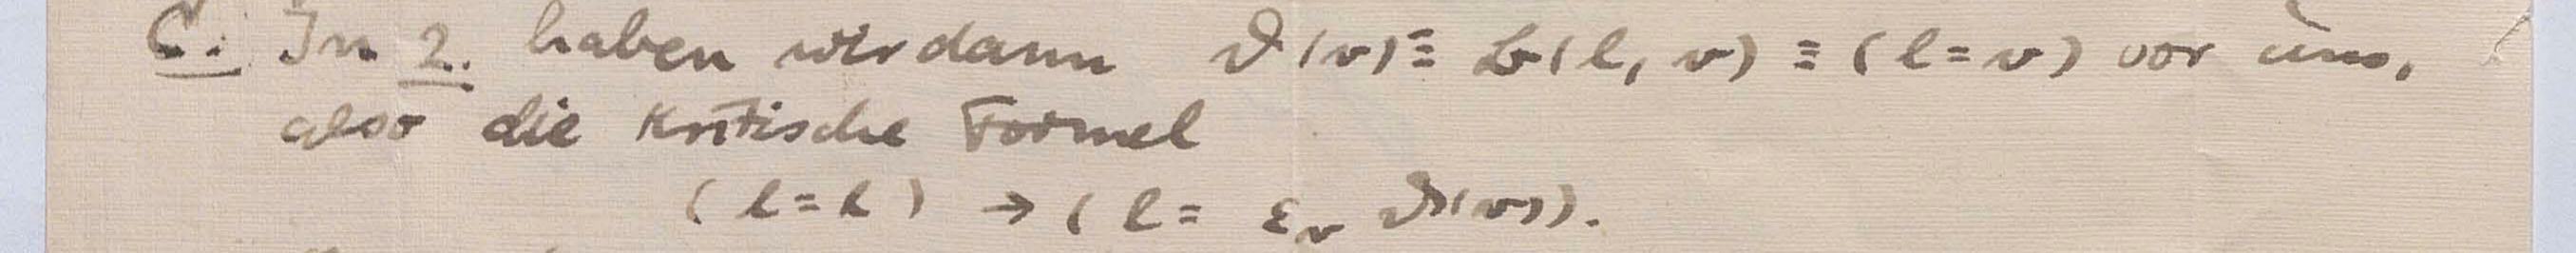 C. In 2. haben wir dann ϑ(v) ≡ b(l, v) ≡ (l = v) vor uns,
also die kritische Formel
(l = l) → (l = ε_v ϑ(v)).